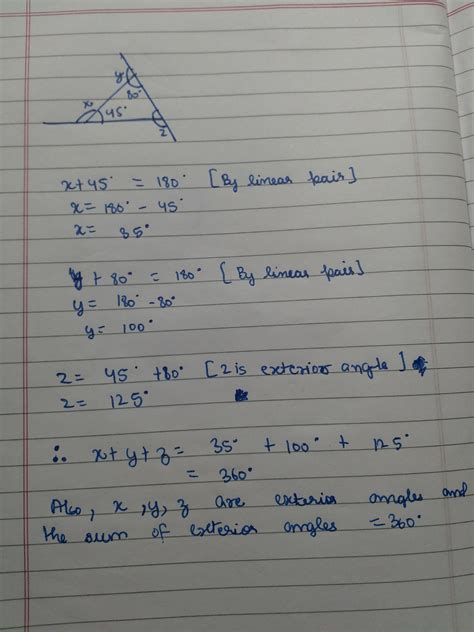 y
80°
x
45°
z
x + 45° = 180° [By linear pair]
x = 180° - 45°
x = 35°
y + 80° = 180° [By linear pair]
y = 180° - 80°
y = 100°
z = 45° + 80° [z is exterior angle]
z = 125°
∴ x + y + z = 35° + 100° + 125°
= 360°
Also, x, y, z are exterior angles and
the sum of exterior angles = 360°